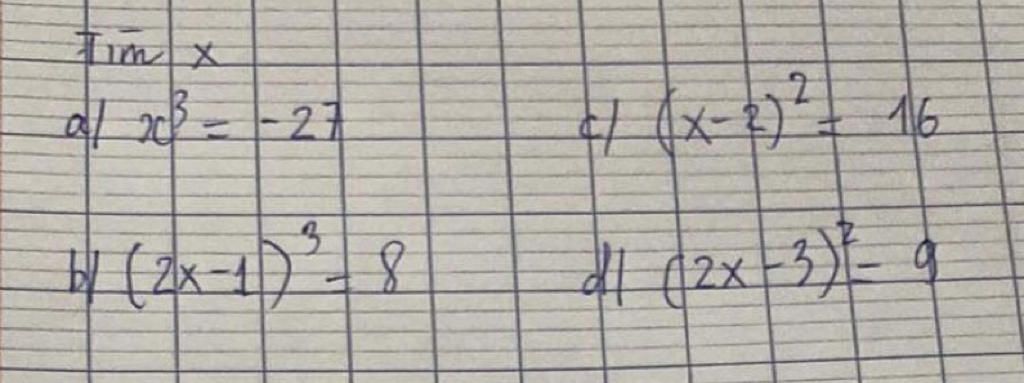 Tìm x
a) x³ = -27
c) (x-2)² = 16
b) (2x-1)³ = 8
d) (2x-3)² = 9